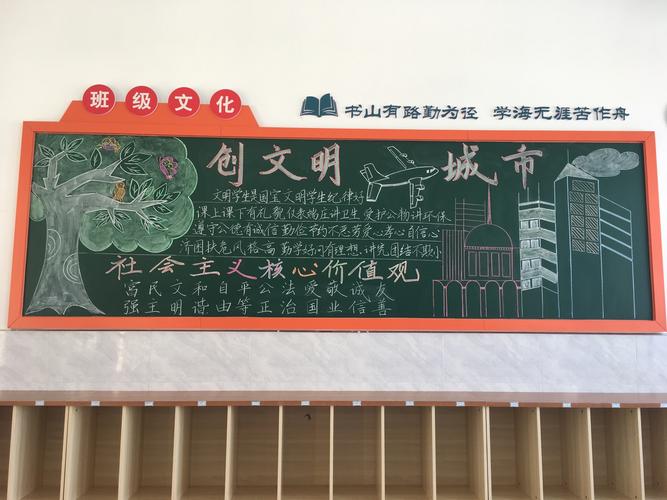 班级文化
书山有路勤为径 学海无涯苦作舟
创文明 城市
文明学生是国宝 文明学生纪律好
课上课下有礼貌 仪表端庄讲卫生 爱护公物讲环保
遵守公德有诚信 勤俭节约不怠劳 爱心孝心自信心
济困扶危风格高 勤学好问有理想 讲究团结不欺小
社会主义核心价值观
富民文和自平公法爱敬诚友
强主明谐由等正治国业信善